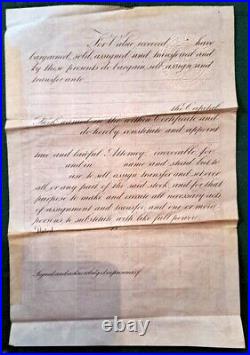 For Value received have
bargained, sold, assigned and transferred and
by these presents do bargain, sell, assign and
transfer unto
the Capital
Stock named in the within Certificate and
do hereby constitute and appoint
true and lawful Attorney irrevocable for
and in name and stead but to
use to sell assign transfer and set over
all or any part of the said stock and for that
purpose to make and execute all necessary acts
of assignment and transfer, and one or more
persons to substitute with like full power.
Dated
Signed and acknowledged in presence of